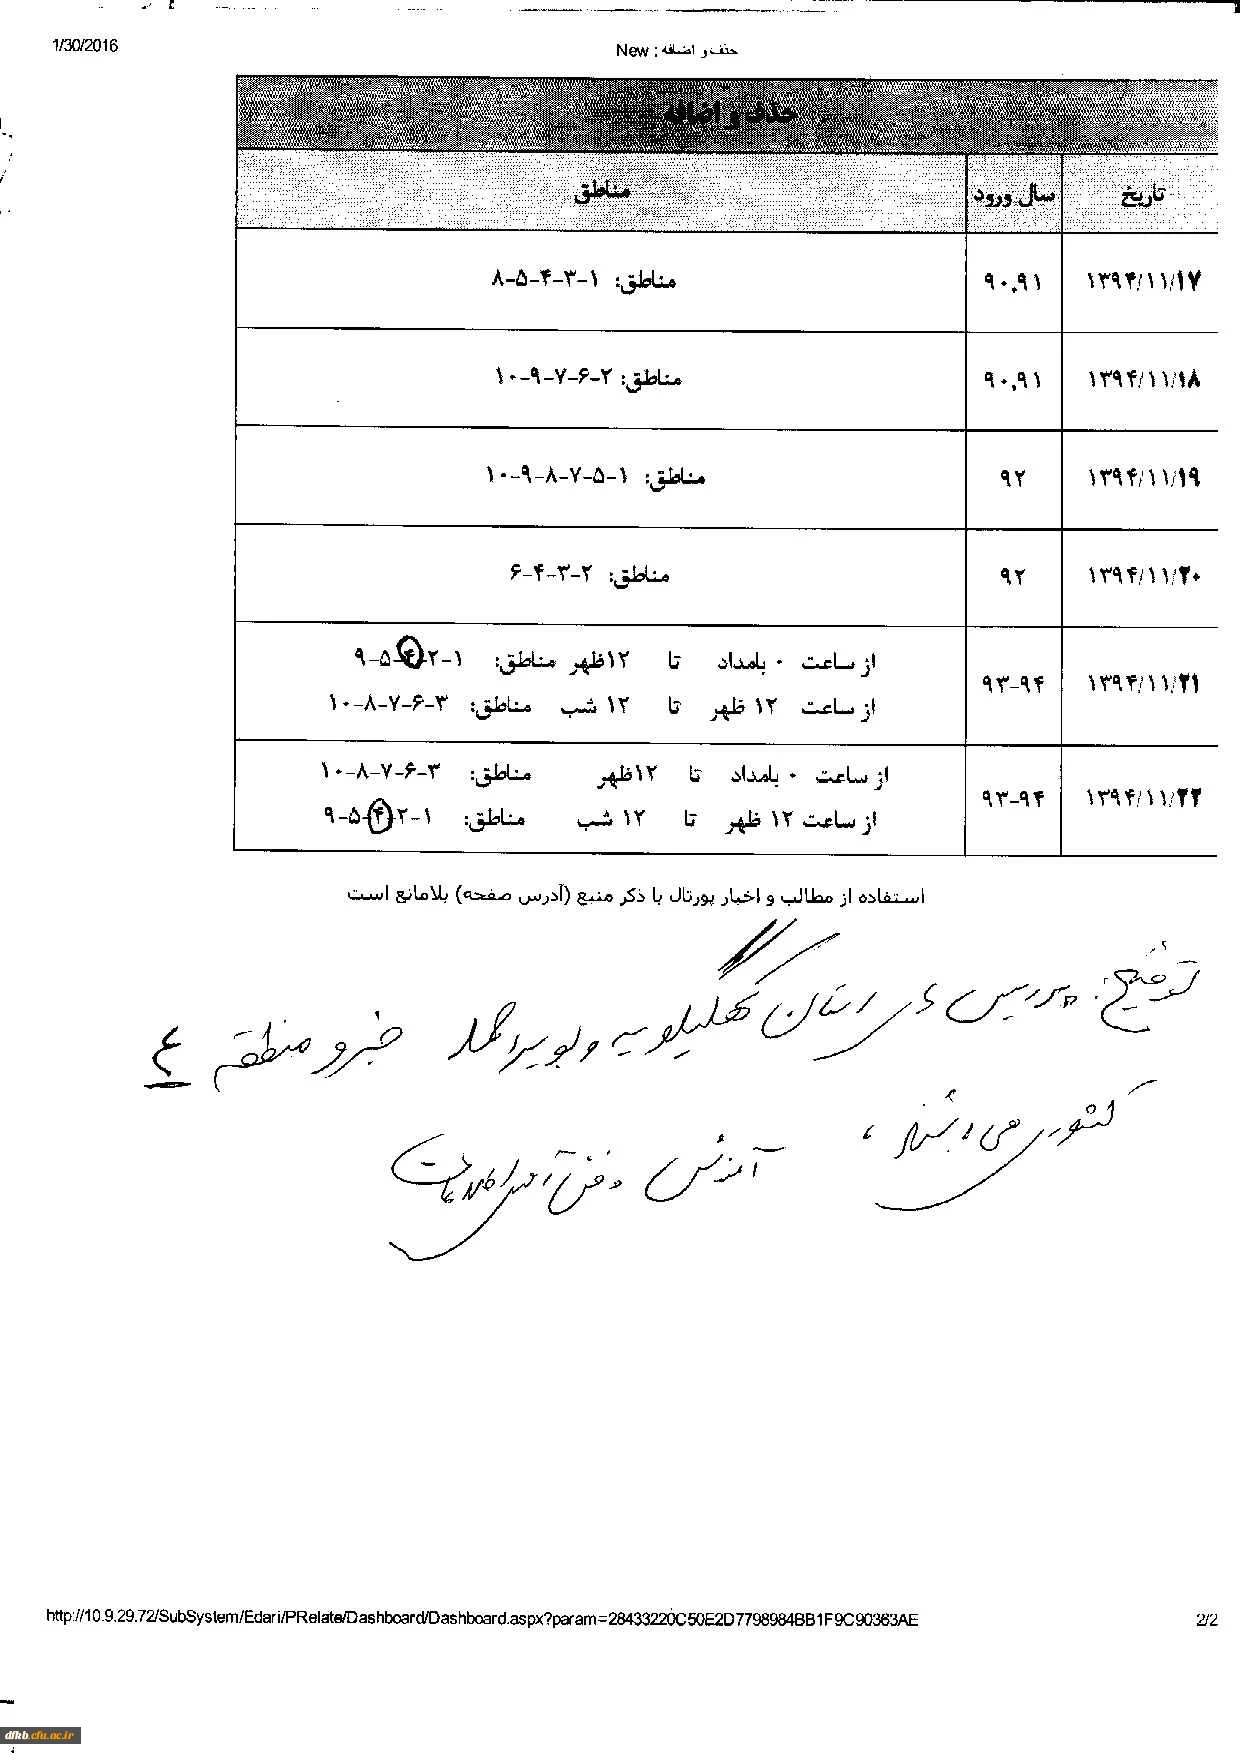 1/30/2016
حذف و اضافه : New
حذف و اضافه
تاریخ سال ورود مناطق
۱۳۹۴/۱۱/۱۷ ۹۰,۹۱ مناطق: ۱-۳-۴-۵-۸
۱۳۹۴/۱۱/۱۸ ۹۰,۹۱ مناطق: ۲-۶-۷-۹-۱۰
۱۳۹۴/۱۱/۱۹ ۹۲ مناطق: ۱-۵-۷-۸-۹-۱۰
۱۳۹۴/۱۱/۲۰ ۹۲ مناطق: ۲-۳-۴-۶
۱۳۹۴/۱۱/۲۱ ۹۳-۹۴ از ساعت ۰ بامداد تا ۱۲ظهر مناطق: ۱-۲-۴-۵-۹
از ساعت ۱۲ ظهر تا ۱۲ شب مناطق: ۳-۶-۷-۸-۱۰
۱۳۹۴/۱۱/۲۲ ۹۳-۹۴ از ساعت ۰ بامداد تا ۱۲ظهر مناطق: ۳-۶-۷-۸-۱۰
از ساعت ۱۲ ظهر تا ۱۲ شب مناطق: ۱-۲-۴-۵-۹
استفاده از مطالب و اخبار پورتال با ذکر منبع (آدرس صفحه) بلامانع است
توضیح: پردیس های استان کهگیلویه و بویراحمد جزو منطقه ۴
کشوری می باشند،
آموزش و فن آوری اطلاعات
http://10.9.29.72/SubSystem/Edari/PRelate/Dashboard/Dashboard.aspx?param=28433220C50E2D7798984BB1F9C90363AE
2/2
dfkb.cfu.ac.ir